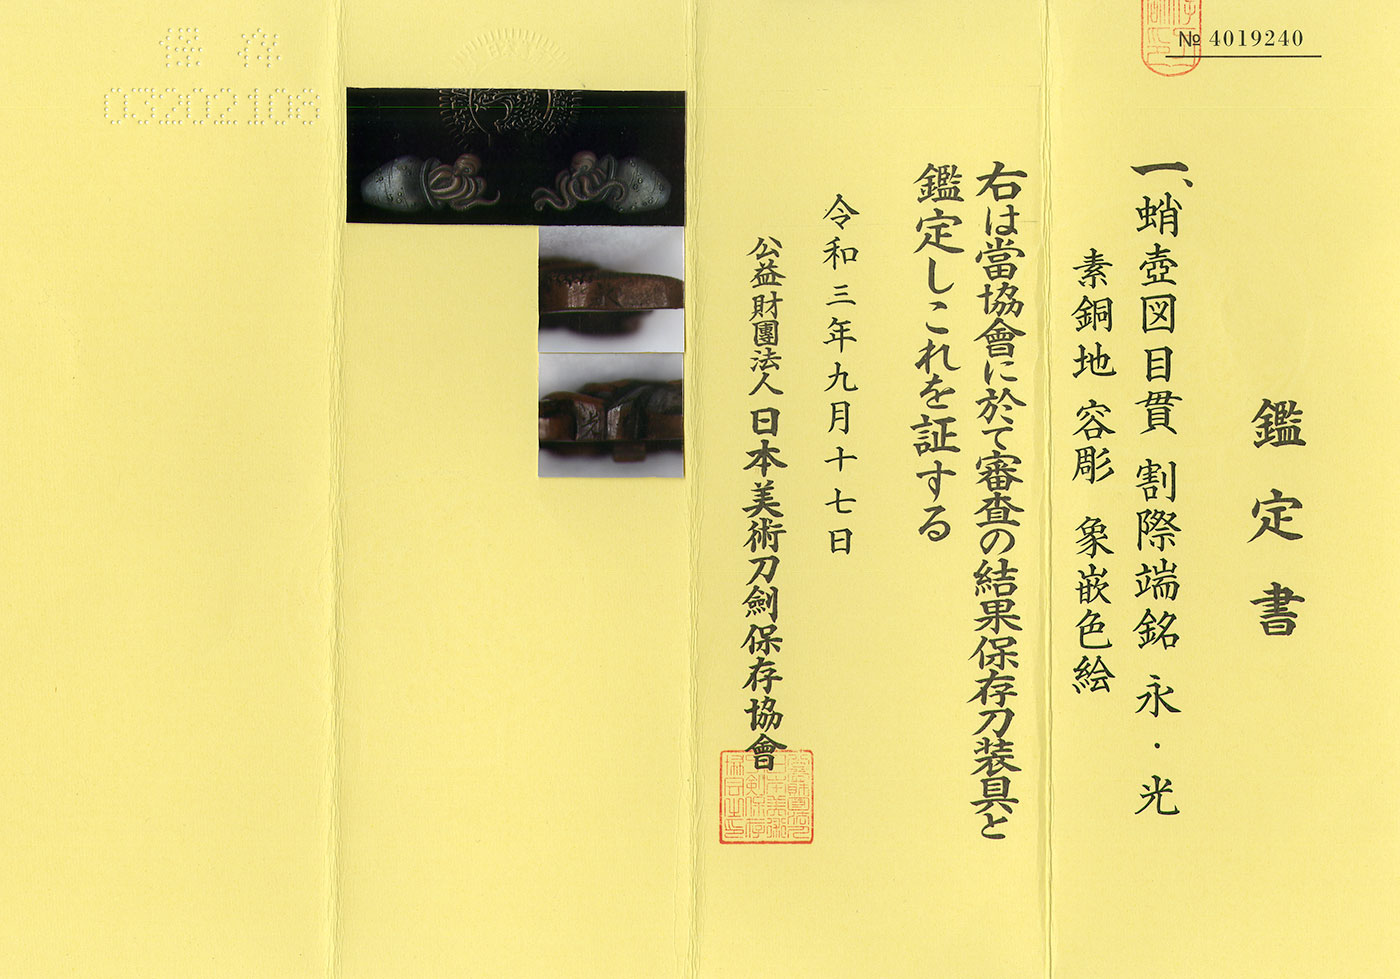 № 4019240
鑑定書
一、蛸壺図目貫 割際端銘 永・光
素銅地 容彫 象嵌色絵
右は當協會に於て審査の結果保存刀装具と
鑑定しこれを証する
令和三年九月十七日
公益財團法人 日本美術刀劍保存協會
保存
03202108